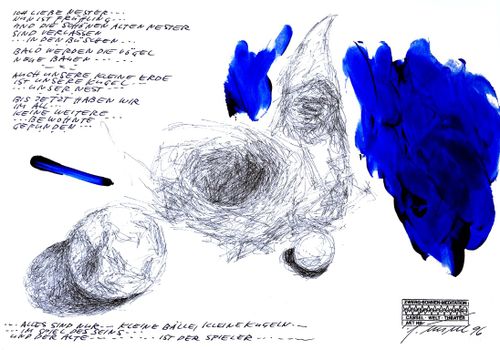 ICH LIEBE NESTER...
NUN IST FRÜHLING...
UND DIE SCHÖNEN ALTEN NESTER
SIND VERLASSEN
... IN DEN BÜSCHEN...
BALD WERDEN DIE VÖGEL
NEUE BAUEN...
AUCH UNSERE KLEINE ERDE
IST UNSERE KUGEL...
... UNSER NEST...
BIS JETZT HABEN WIR
IM ALL...
KEINE WEITERE
... BEWOHNTE
GEFUNDEN...
... ALLES SIND NUR... KLEINE BÄLLE, KLEINE KUGELN...
... IM SPIEL DES SEINS...
UND DER ALTE... IST DER SPIELER...
ZWERG-BOHNEN-MEDITATION
WELT THEATER
ART
96